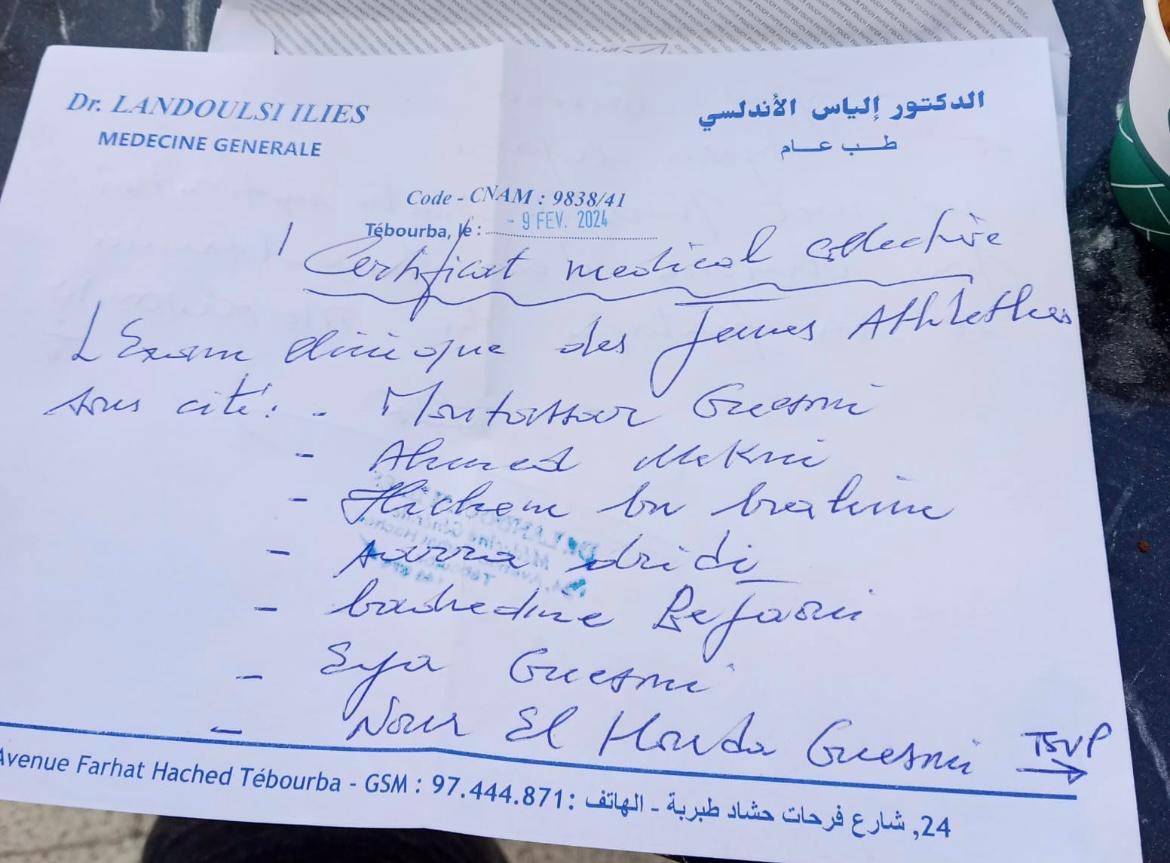 Dr. LANDOULSI ILIES
MEDECINE GENERALE
الدكتور إلياس الأندلسي
طــب عــام
Code - CNAM : 9838/41
Tébourba, le : - 9 FEV. 2024
Certificat medical collective
L'Exam clinique des Jeunes Athlethes
sous cité : - Montassar Guesmi
- Ahmed Mekni
- Hichem ben brahim
- idridi
- badredine Bejaoui
- Eya Guesmi
- Nour El Houda Guesmi TSVP
Avenue Farhat Hached Tébourba - GSM : 97.444.871 : 24, شارع فرحات حشاد طبربة - الهاتف